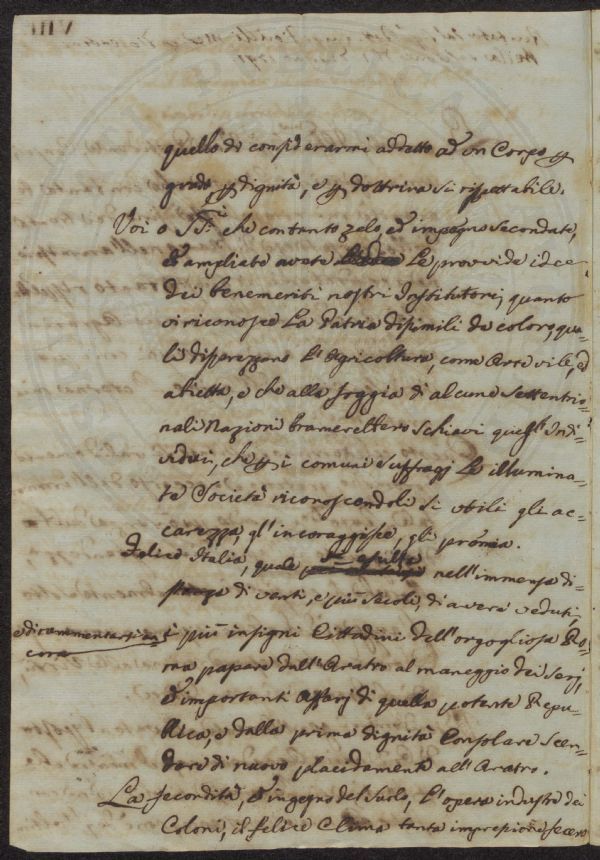 VIII
quello di considerarmi addetto ad un Corpo p
grado, p dignità, e p dottrina sì rispettabile.
Voi o SS.ri che con tanto zelo, ed impegno secondate,
ed ampliate avete le provvide idee
dei benemeriti nostri Institutori, quanto
vi riconosce La Patria dissimili da coloro, qua-
li disprezzano l'Agricoltura, come Arte vile, ed
abietta, e che alla foggia di alcune Settentrio-
nali Nazioni bramerebbero schiavi quegl'Indi-
vidui, che p i comuni suffragj Le illumina-
te Società riconoscendoli sì utili gli ac-
carezza, gl'incoraggisce, gli premia.
Felice Italia, quale esulta nell'immensa di-
stanza di venti, e più secoli, di avere veduti,
e di rammentarsi ancora
i più insigni Cittadini dell'orgogliosa Ro-
ma passare dall'Aratro al maneggio dei serj,
ed importanti Affarj di quella potente Repu-
blica, e dalla prima dignità Consolare Scen-
dere di nuovo placidamente all'Aratro.
La fecondità, ed ingegno del Suolo, l'opera industre dei
Coloni, il felice Clima tanta impressione fecero